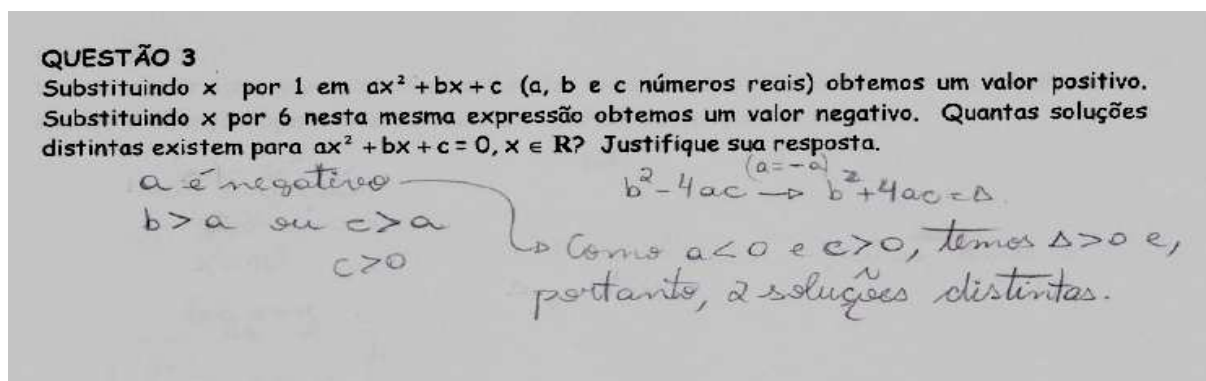 QUESTÃO 3
Substituindo x por 1 em ax² + bx + c (a, b e c números reais) obtemos um valor positivo.
Substituindo x por 6 nesta mesma expressão obtemos um valor negativo. Quantas soluções
distintas existem para ax² + bx + c = 0, x ∈ R? Justifique sua resposta.
a é negativo
b > a ou c > a
c > 0
(a = -a)
b² - 4ac → b² + 4ac = Δ
→ Como a < 0 e c > 0, temos Δ > 0 e,
portanto, 2 soluções distintas.